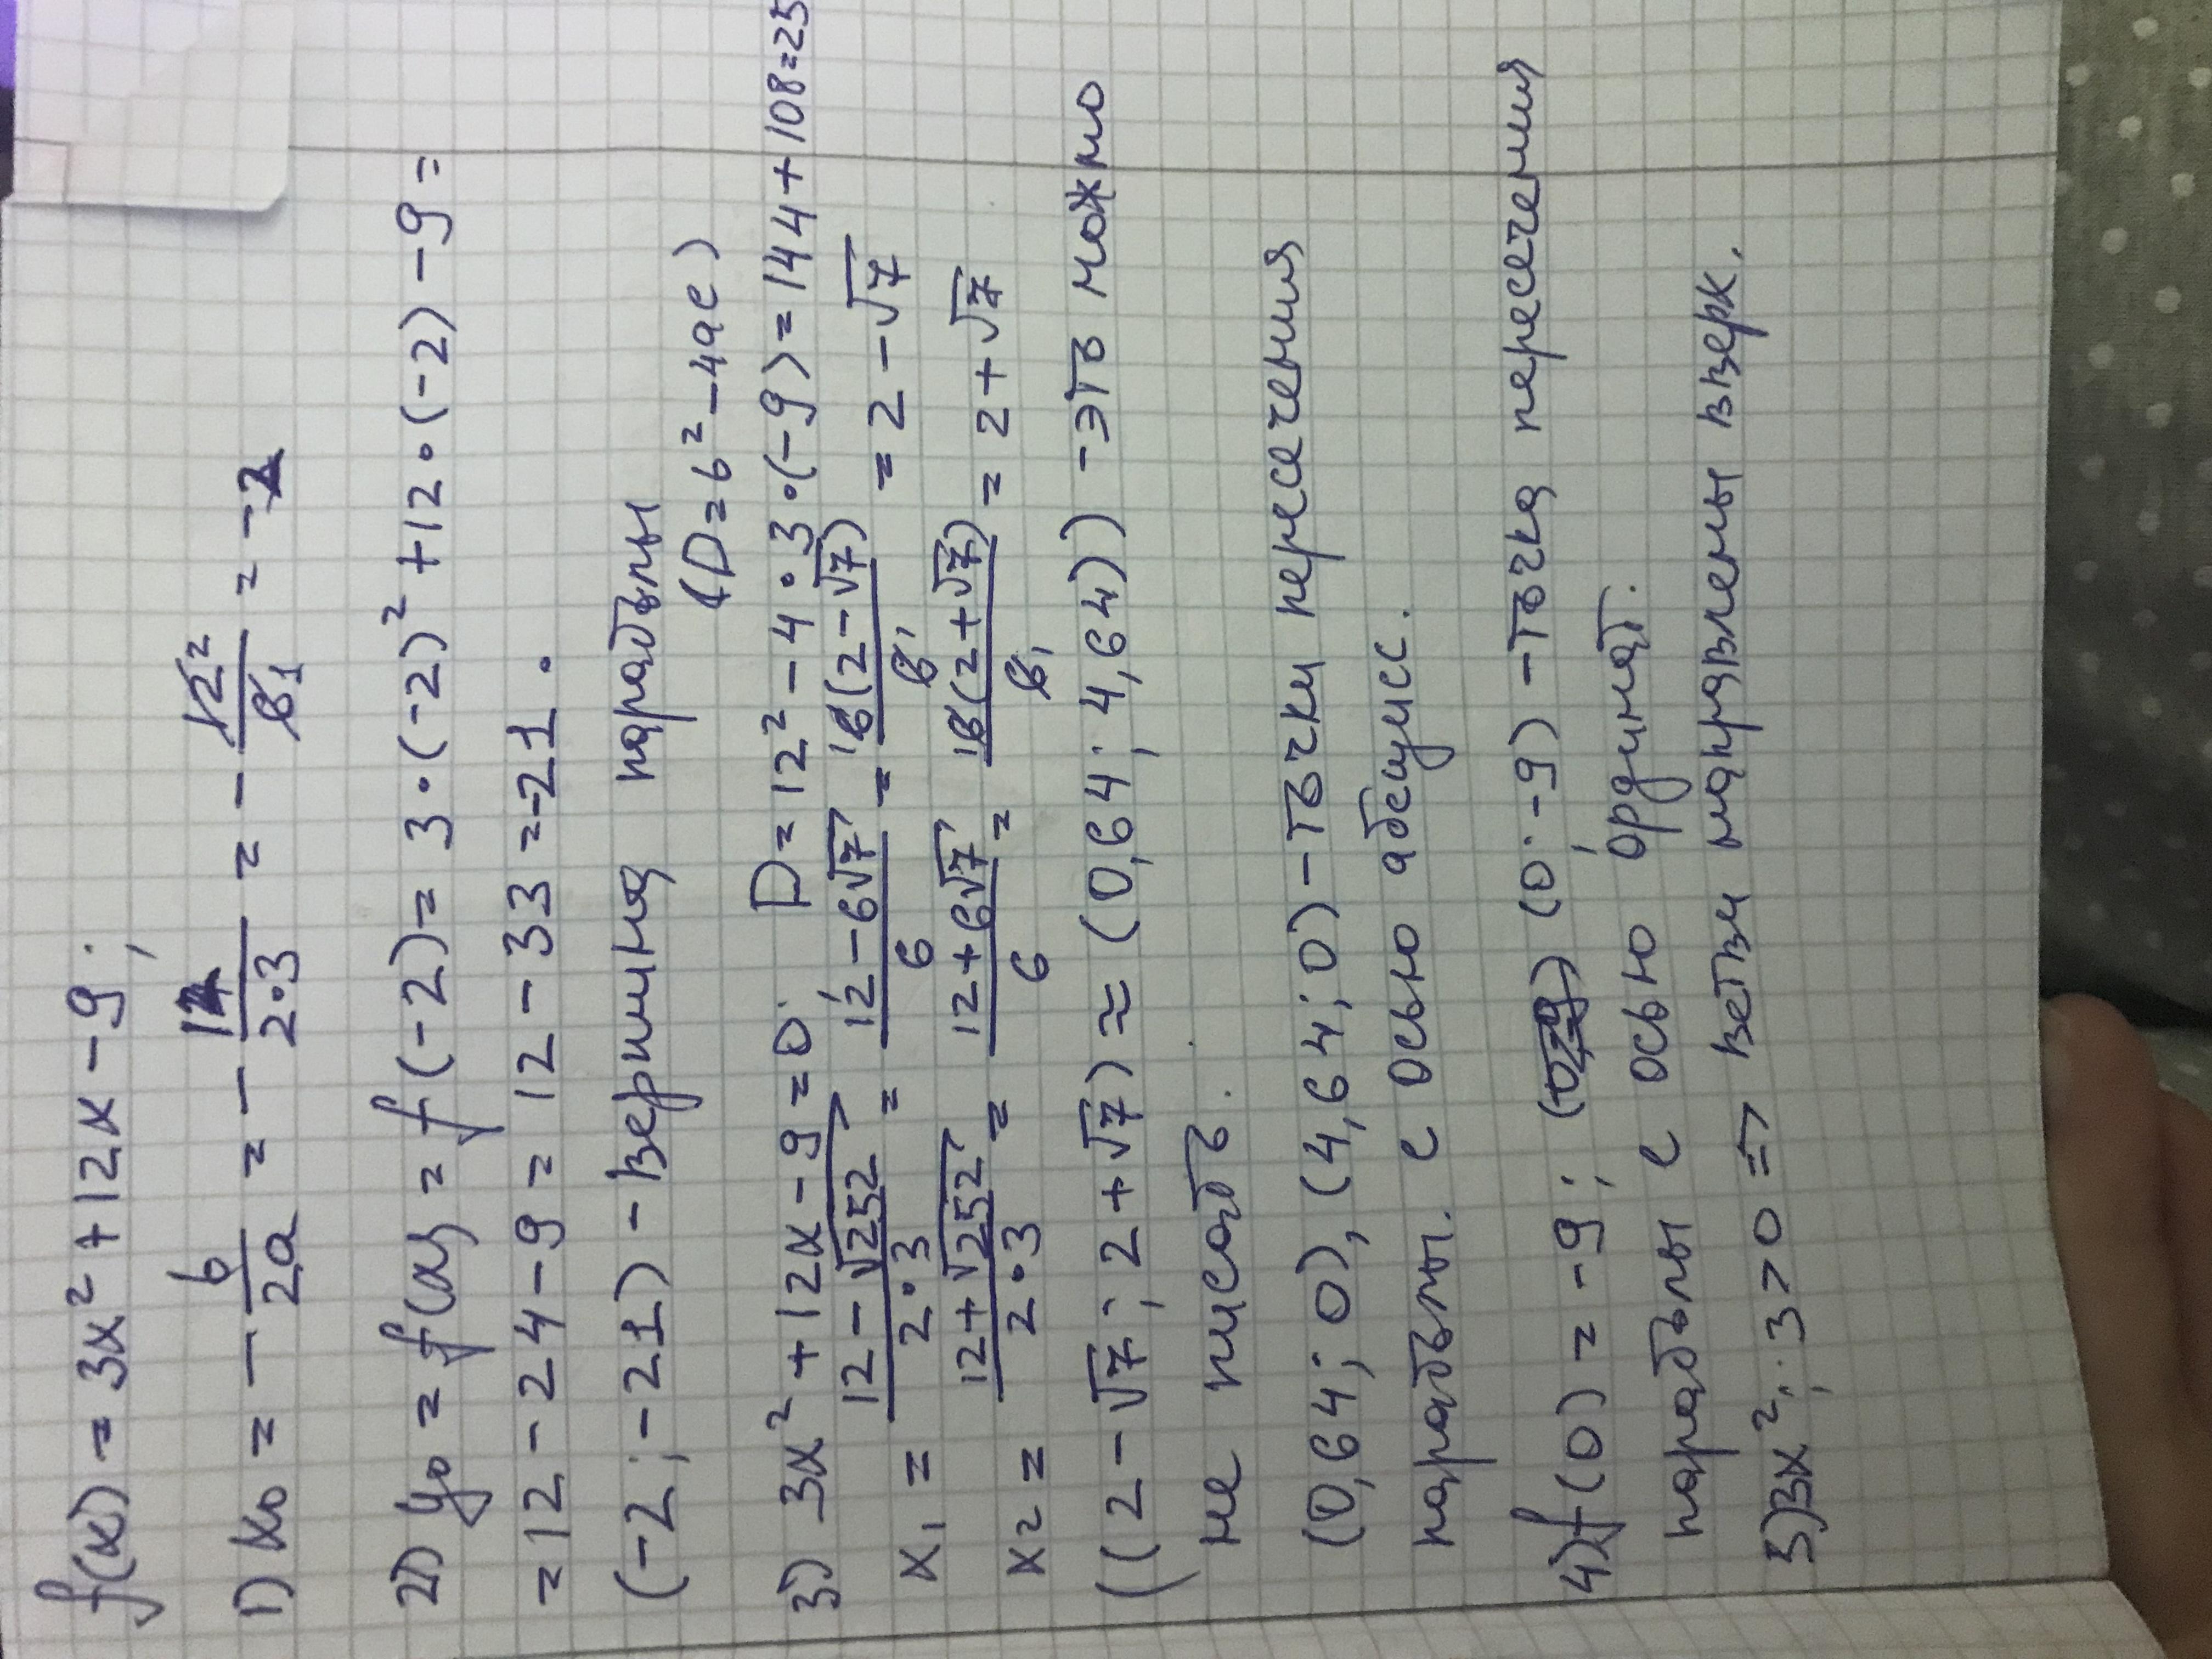 f(x) = 3x² + 12x - 9;
1) x₀ = - b/2a = - 12/2·3 = - 12²/6₁ = -2
2) y₀ = f(x) = f(-2) = 3·(-2)² + 12·(-2) - 9 =
= 12 - 24 - 9 = 12 - 33 = -21.
(-2; -21) - вершина параболы
(D = b² - 4ac)
3) 3x² + 12x - 9 = 0; D = 12² - 4·3·(-9) = 144 + 108 = 25
x₁ = (12 - √252)/2·3 = (12 - 6√7)/6 = ¹6(2 - √7)/6₁ = 2 - √7
x₂ = (12 + √252)/2·3 = (12 + 6√7)/6 = ¹6(2 + √7)/6₁ = 2 + √7
((2 - √7; 2 + √7) ≈ (0,64; 4,64)) - это можно
не писать.
(0,64; 0), (4,64; 0) - точки пересечения
параболы с осью абсцисс.
4) f(0) = -9; (0; -9) - точка пересечения
параболы с осью ординат.
5) 3x²; 3 > 0 => ветви направлены вверх.